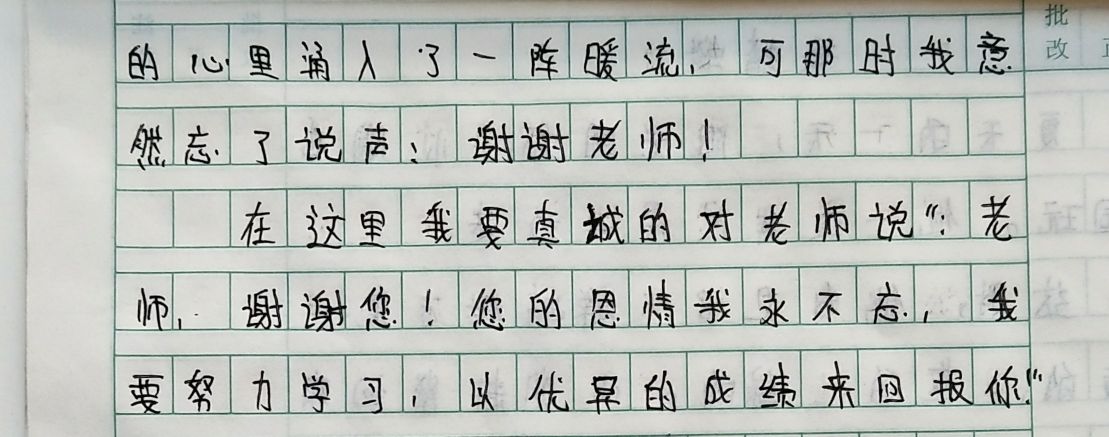 的心里涌入了一阵暖流,可那时我意
然忘了说声:谢谢老师!
在这里我要真诚的对老师说“:老
师,谢谢您!您的恩情我永不忘,我
要努力学习,以优异的成绩来回报你!”
批改